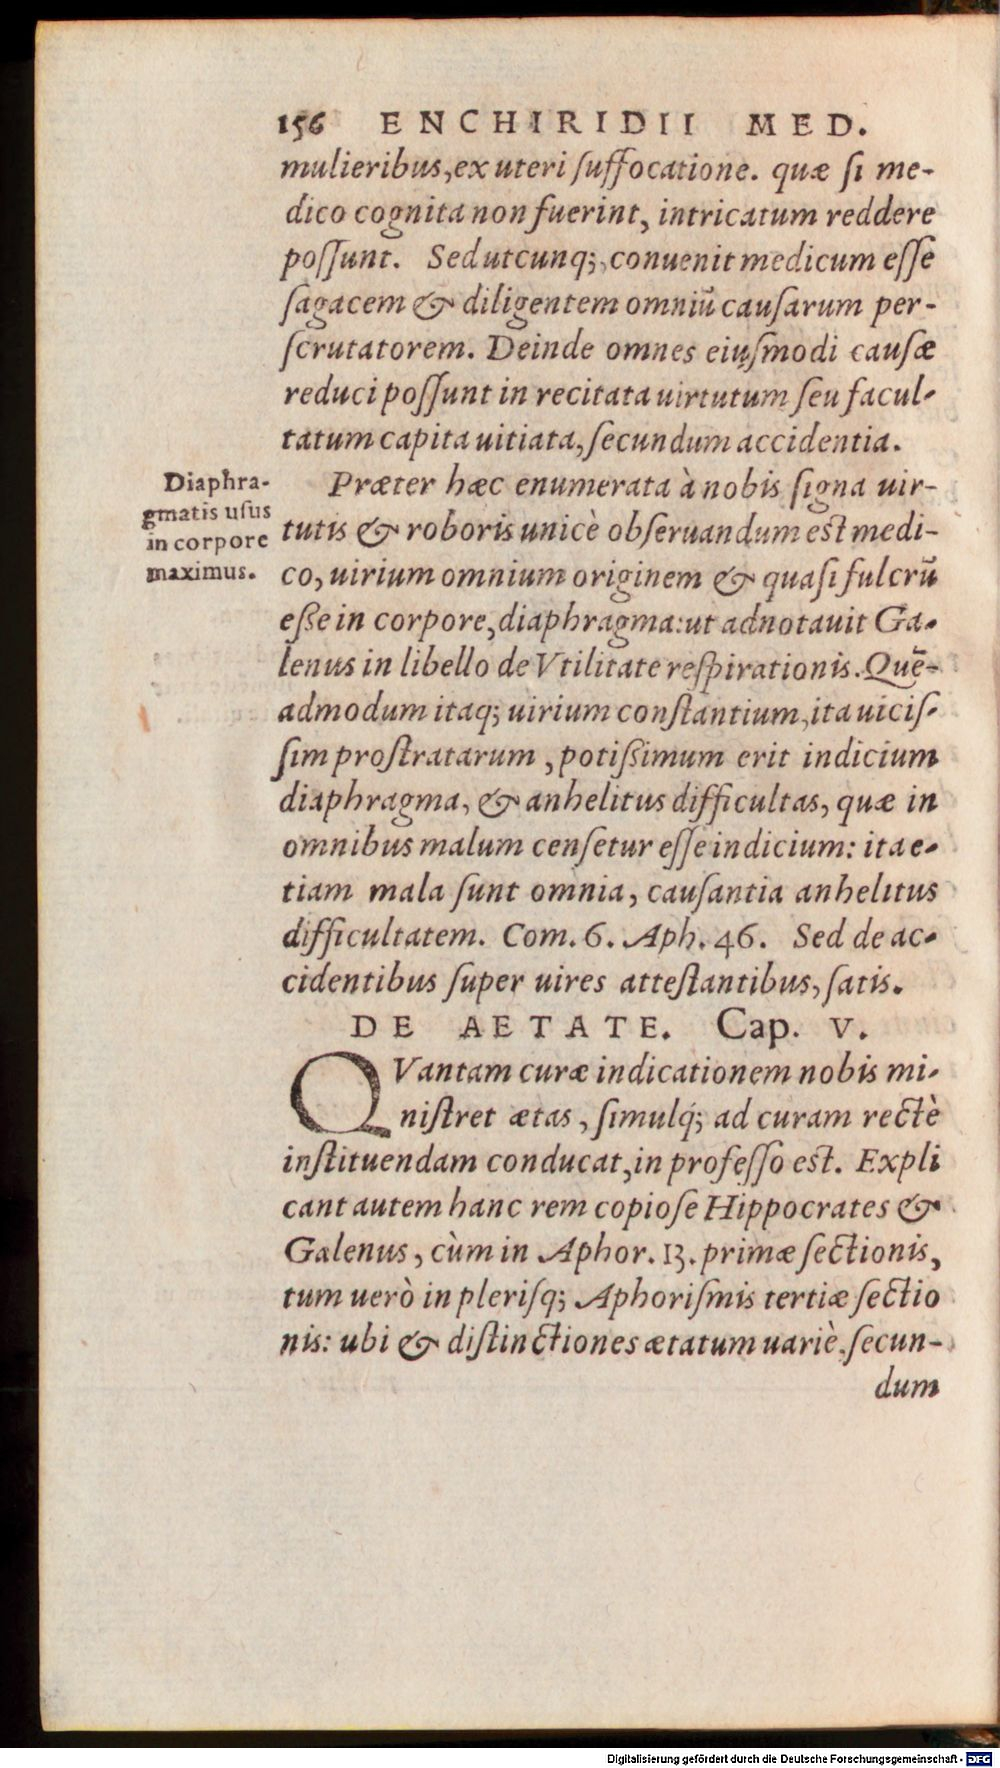 156 ENCHIRIDII MED.
mulieribus, ex uteri ſuffocatione. quæ ſi me-
dico cognita non fuerint, intricatum reddere
poſſunt. Sed utcunq;, conuenit medicum eſſe
ſagacem & diligentem omniũ cauſarum per-
ſcrutatorem. Deinde omnes eiuſmodi cauſæ
reduci poſſunt in recitata uirtutum ſeu facul-
tatum capita uitiata, ſecundum accidentia.
Diaphra-
gmatis uſus
in corpore
maximus.
Præter hæc enumerata à nobis ſigna uir-
tutis & roboris unicè obſeruandum eſt medi-
co, uirium omnium originem & quaſi fulcrũ
eße in corpore, diaphragma: ut adnotauit Ga-
lenus in libello de Vtilitate reſpirationis. Quẽ-
admodum itaq; uirium conſtantium, ita uiciſ-
ſim proſtratarum, potißimum erit indicium
diaphragma, & anhelitus difficultas, quæ in
omnibus malum cenſetur eſſe indicium: ita e-
tiam mala ſunt omnia, cauſantia anhelitus
difficultatem. Com. 6. Aph. 46. Sed de ac-
cidentibus ſuper uires atteſtantibus, ſatis.
DE AETATE. Cap. V.
QVantam curæ indicationem nobis mi-
niſtret ætas, ſimulq́; ad curam rectè
inſtituendam conducat, in profeſſo eſt. Expli
cant autem hanc rem copioſe Hippocrates &
Galenus, cùm in Aphor. 13. primæ ſectionis,
tum uerò in pleriſq; Aphoriſmis tertiæ ſectio
nis: ubi & diſtinctiones ætatum uariè, ſecun-
dum
Digitalisierung gefördert durch die Deutsche Forschungsgemeinschaft - DFG